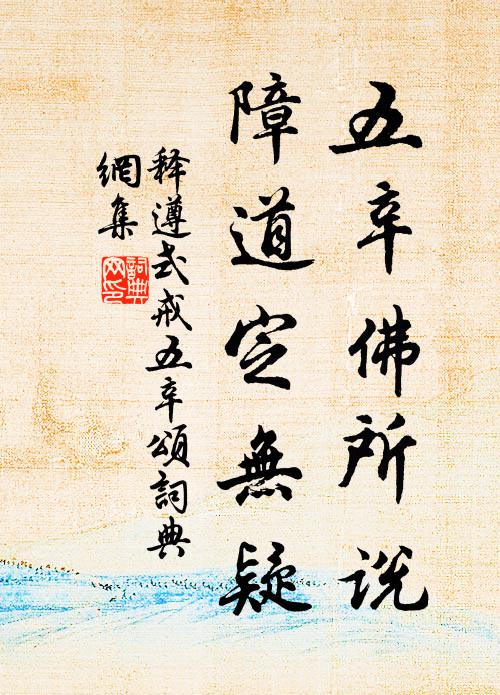 五辛佛所说
障道定無疑
释遵式戒五辛頌詞典
網集
詞典网印